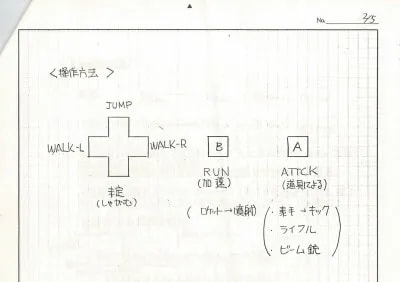 No. 2/5
<操作方法>
JUMP
WALK-L
WALK-R
B
A
RUN
(加速)
ATTCK
(道具による)
(しゃがむ)
(ロケット→噴射)
・素手→キック
・ライフル
・ビーム銃